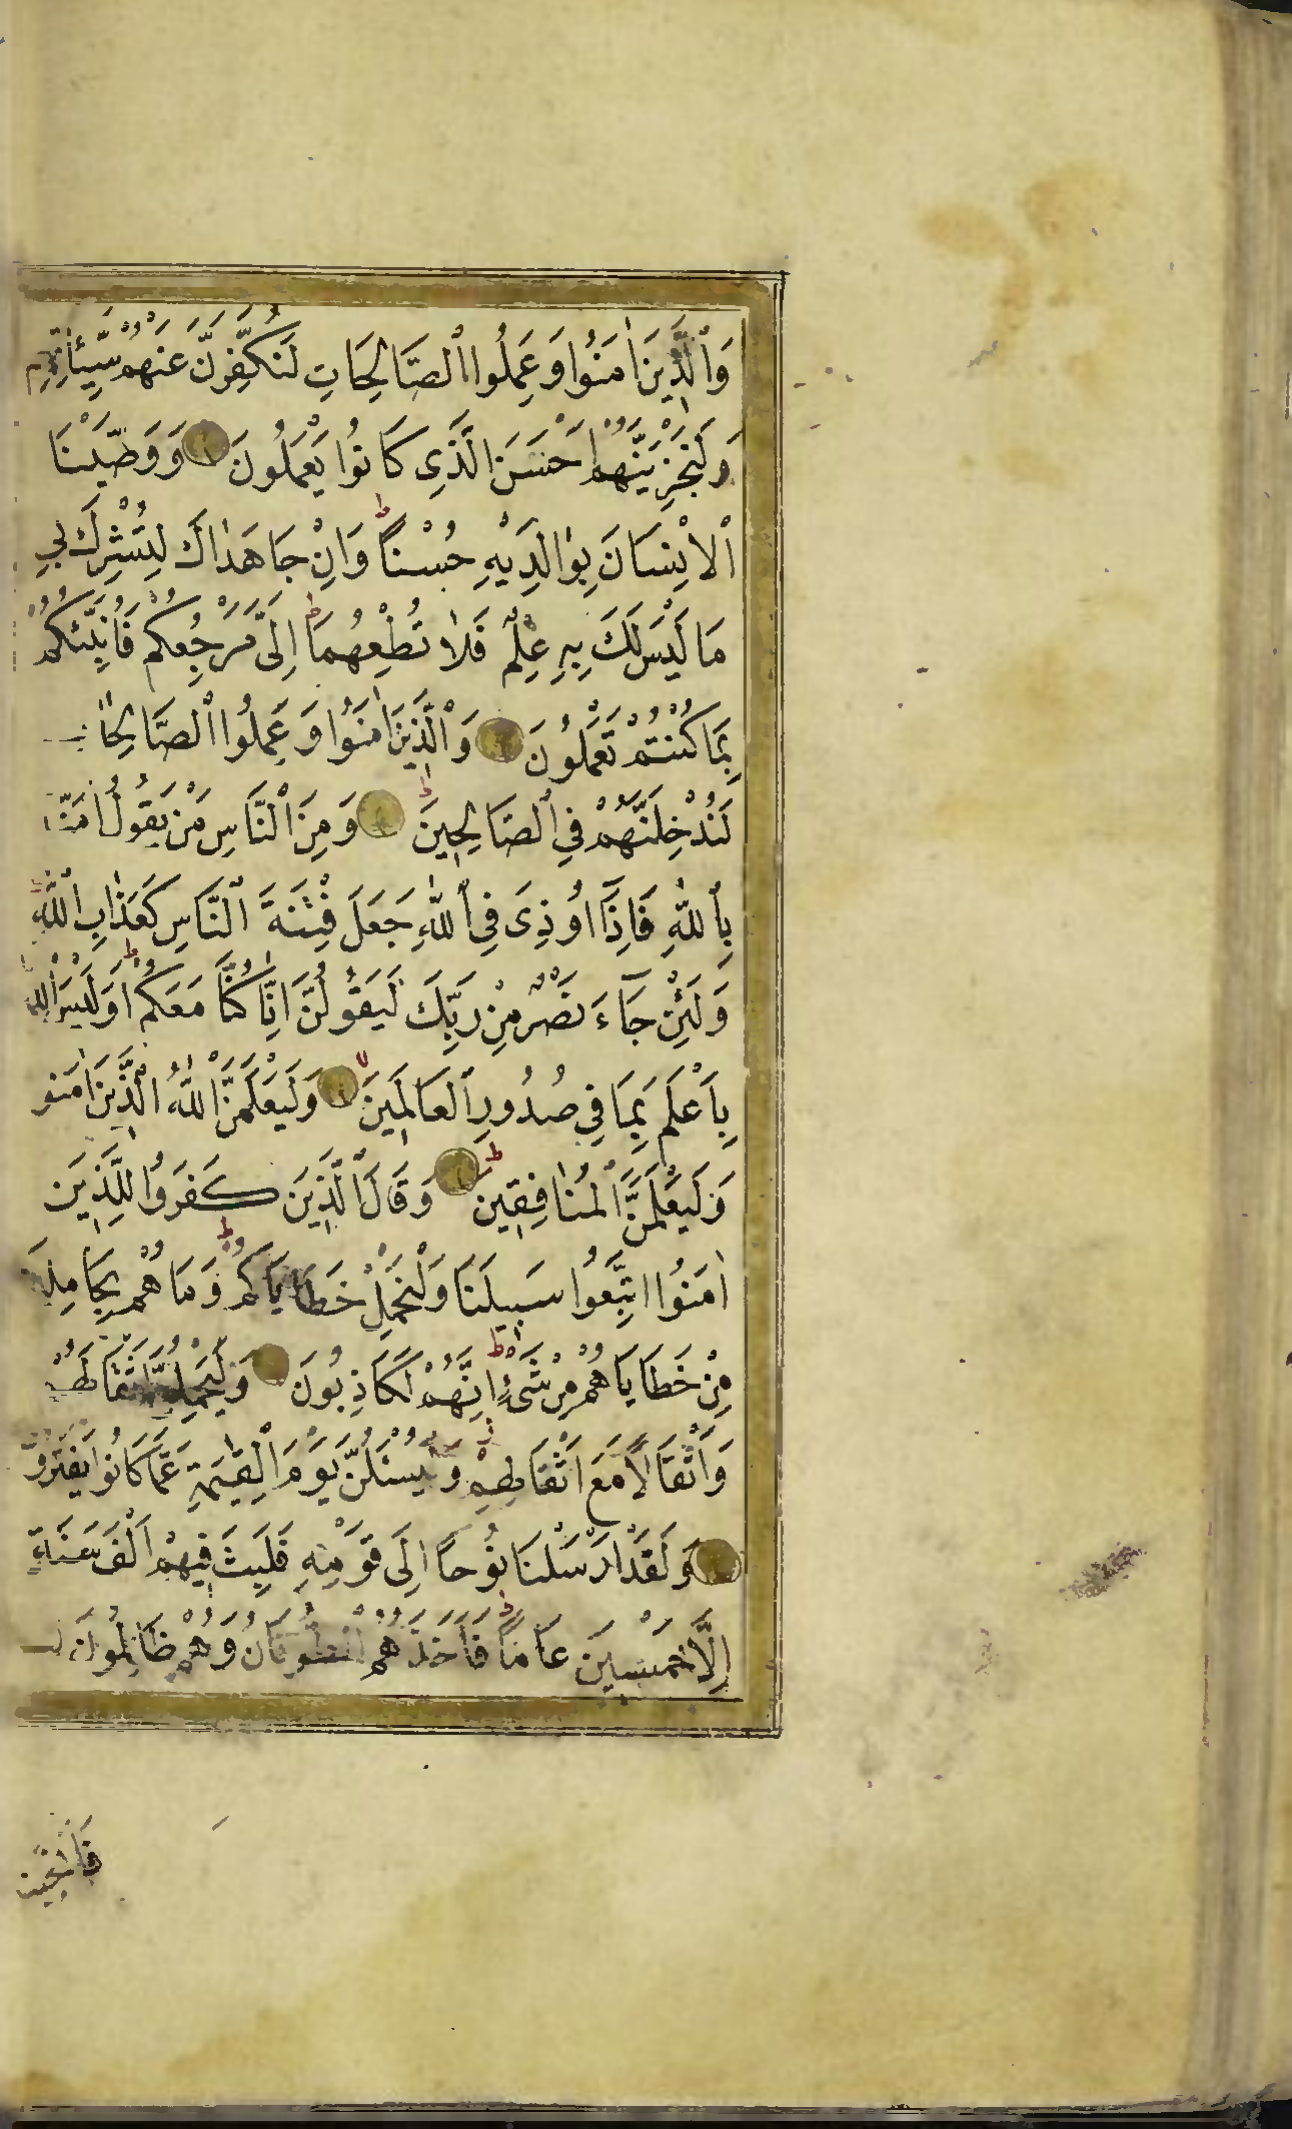 وَالَّذِينَ اٰمَنُوا وَعَمِلُوا الصَّالِحَاتِ لَنُكَفِّرَنَّ عَنْهُمْ سَيِّئَاتِهِمْ
وَلَنَجْزِيَنَّهُمْ اَحْسَنَ الَّذِى كَانُوا يَعْمَلُونَ وَوَصَّيْنَا
الْاِنْسَانَ بِوٰالِدَيْهِ حُسْنًا وَاِنْ جَاهَدٰاكَ لِتُشْرِكَ بِي
مَا لَيْسَ لَكَ بِهِ عِلْمٌ فَلَا تُطِعْهُمَا اِلَىَّ مَرْجِعُكُمْ فَاُنَبِّئُكُمْ
بِمَا كُنْتُمْ تَعْمَلُونَ وَالَّذِينَ اٰمَنُوا وَعَمِلُوا الصَّالِحَاتِ
لَنُدْخِلَنَّهُمْ فِي الصَّالِحِينَ وَمِنَ النَّاسِ مَنْ يَقُولُ اٰمَنَّا
بِاللّٰهِ فَاِذَا اُوذِىَ فِي اللّٰهِ جَعَلَ فِتْنَةَ النَّاسِ كَعَذَابِ اللّٰهِ
وَلَئِنْ جَآءَ نَصْرٌ مِنْ رَبِّكَ لَيَقُولُنَّ اِنَّا كُنَّا مَعَكُمْ اَوَلَيْسَ اللّٰهُ
بِاَعْلَمَ بِمَا فِي صُدُورِ الْعَالَمِينَ وَلَيَعْلَمَنَّ اللّٰهُ الَّذِينَ اٰمَنُو
وَلَيَعْلَمَنَّ الْمُنَافِقِينَ وَقَالَ الَّذِينَ كَفَرُوا لِلَّذِينَ
اٰمَنُوا اتَّبِعُوا سَبِيلَنَا وَلْنَحْمِلْ خَطَايَاكُمْ وَمَا هُمْ بِحَامِلِينَ
مِنْ خَطَايَاهُمْ مِنْ شَىْءٍ اِنَّهُمْ لَكَاذِبُونَ وَلَيَحْمِلُنَّ اَثْقَالَهُمْ
وَاَثْقَالًا مَعَ اَثْقَالِهِمْ وَلَيُسْئَلُنَّ يَوْمَ الْقِيٰمَةِ عَمَّا كَانُوا يَفْتَرُونَ
وَلَقَدْ اَرْسَلْنَا نُوحًا اِلَى قَوْمِهِ فَلَبِثَ فِيهِمْ اَلْفَ سَنَةٍ
اِلَّا خَمْسِينَ عَامًا فَاَخَذَهُمُ الطُّوفَانُ وَهُمْ ظَالِمُونَ
فَاَنْجَيْنَ